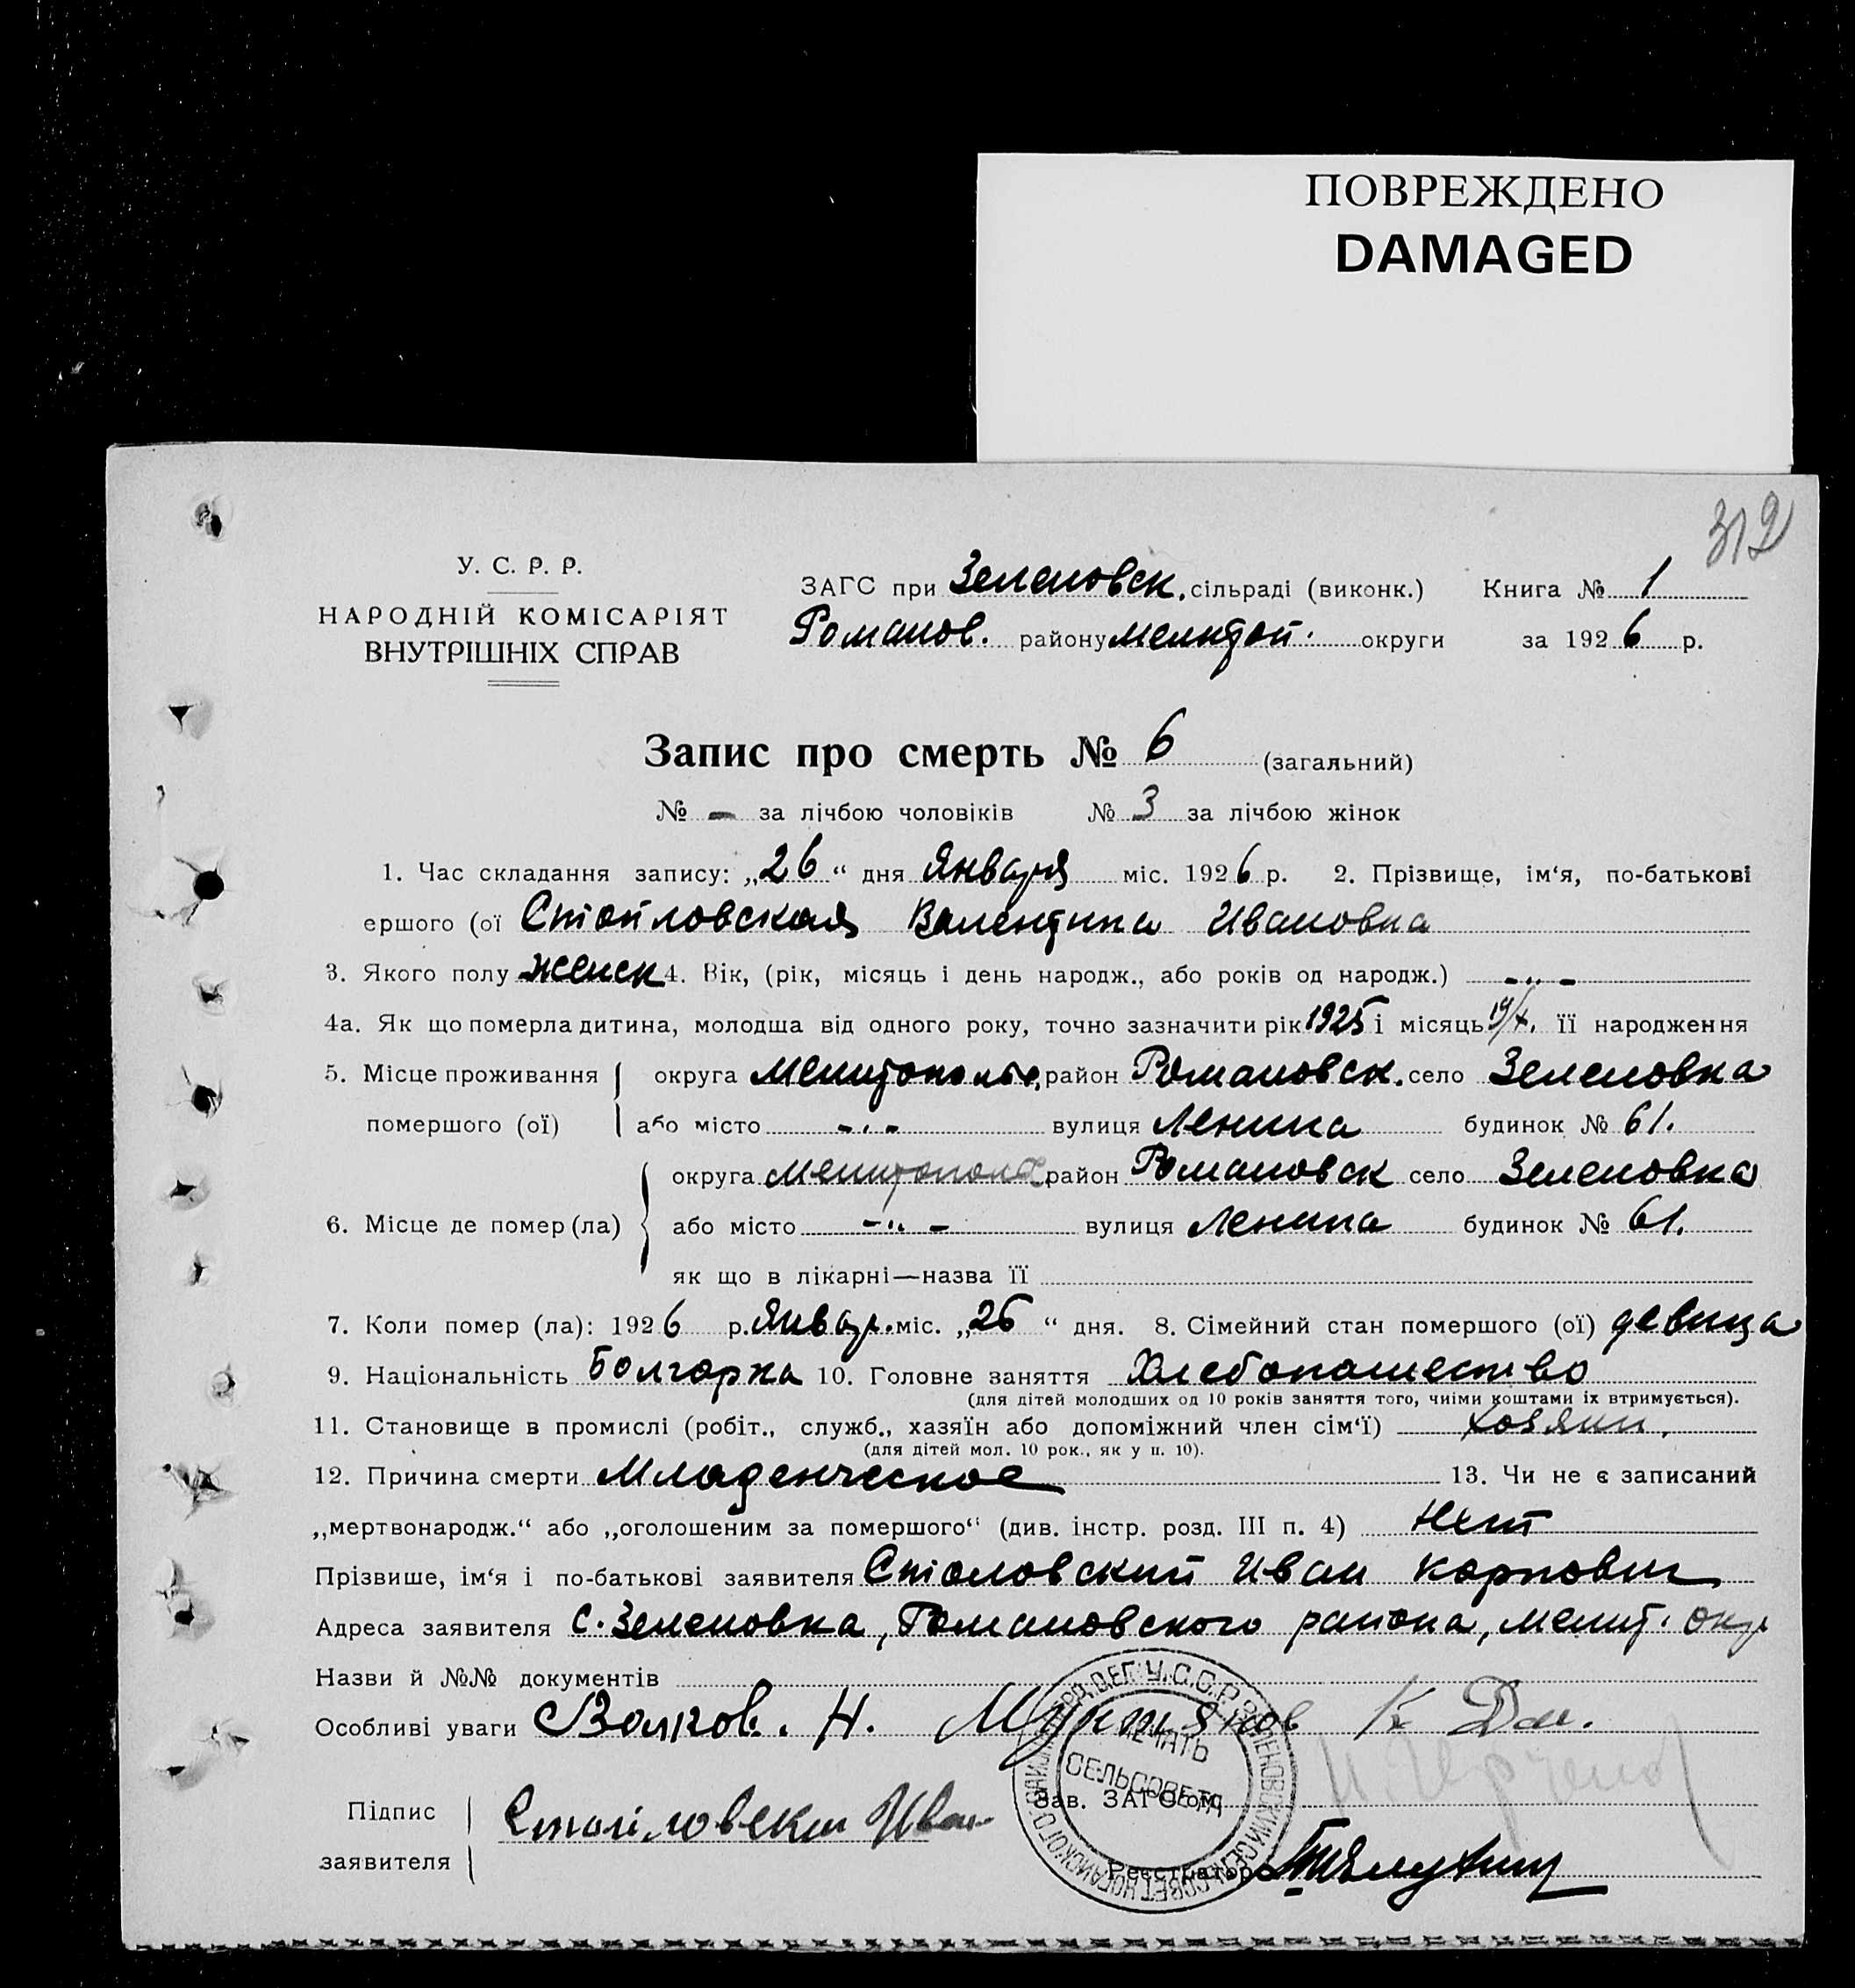 ПОВРЕЖДЕНО
DAMAGED
312
У. С. Р. Р.
НАРОДНІЙ КОМІСАРІЯТ
ВНУТРІШНІХ СПРАВ
ЗАГС при Зеленовск. сільраді (виконк.) Книга № 1
Романов. району Мелитоп. округи за 1926 р.
Запис про смерть № 6 (загальний)
№ - за лічбою чоловіків № 3 за лічбою жінок
1. Час складання запису: „26“ дня Января міс. 1926 р. 2. Прізвище, ім‘я, по-батькові
ершого (ої Стойловская Валентина Ивановна
3. Якого полу женск 4. Вік, (рік, місяць і день народж., або років од народж.) -"-
4а. Як що померла дитина, молодша від одного року, точно зазначити рік 1925 і місяць 19/X. її народження
5. Місце проживання округа Мелитопольс. район Романовск. село Зеленовка
помершого (ої) або місто -"- вулиця Ленина будинок № 61.
округа Мелитопол район Романовск село Зеленовка
6. Місце де помер (ла) або місто -"- вулиця Ленина будинок № 61.
як що в лікарні—назва її
7. Коли помер (ла): 1926 р. Январ. міс. „26“ дня. 8. Сімейний стан помершого (ої) девица
9. Національність Болгарка 10. Головне заняття Хлебопашество
(для дітей молодших од 10 років заняття того, чиїми коштами їх втримується).
11. Становище в промислі (робіт., служб., хазяїн або допоміжний член сім‘ї) хозяин.
(для дітей мол. 10 рок., як у п. 10).
12. Причина смерти Младенческое 13. Чи не є записаний
„мертвонародж.“ або „оголошеним за помершого“ (див. інстр. розд. III п. 4) Нет
Прізвише, ім‘я і по-батькові заявителя Столовский Иван Карпович
Адреса заявителя с. Зеленовка, Романовского района, Мелит. окр
Назви й №№ документів
Особливі уваги Волков. Н. К
ПЕЧАТЬ
СЕЛЬСОВЕТА
Зав. ЗАГС‘ом
Підпис заявителя Стойловски Иван
Реєстратор